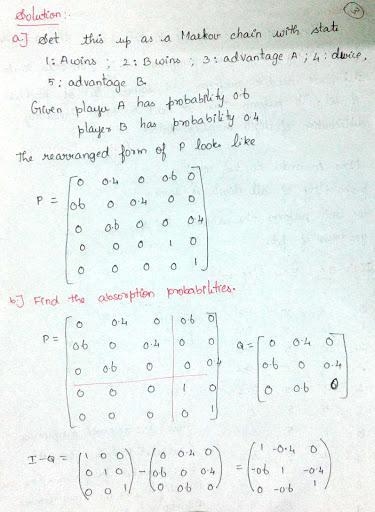 3
Solution:
a] Set this up as a Markov chain with state
1: A wins ; 2: B wins ; 3: advantage A ; 4: deuce,
5: advantage B.
Given player A has probability 0.6
player B has probability 0.4
The rearranged form of P looks like
P = [0 0.4 0 0.6 0
0.6 0 0.4 0 0
0 0.6 0 0 0.4
0 0 0 1 0
0 0 0 0 1]
b] Find the absorption probabilities.
P = [0 0.4 0 0.6 0
0.6 0 0.4 0 0
0 0.6 0 0 0.4
0 0 0 1 0
0 0 0 0 1]
Q = [0 0.4 0
0.6 0 0.4
0 0.6 0]
I - Q = (1 0 0
0 1 0
0 0 1) - (0 0.4 0
0.6 0 0.4
0 0.6 0) = (1 -0.4 0
-0.6 1 -0.4
0 -0.6 1)